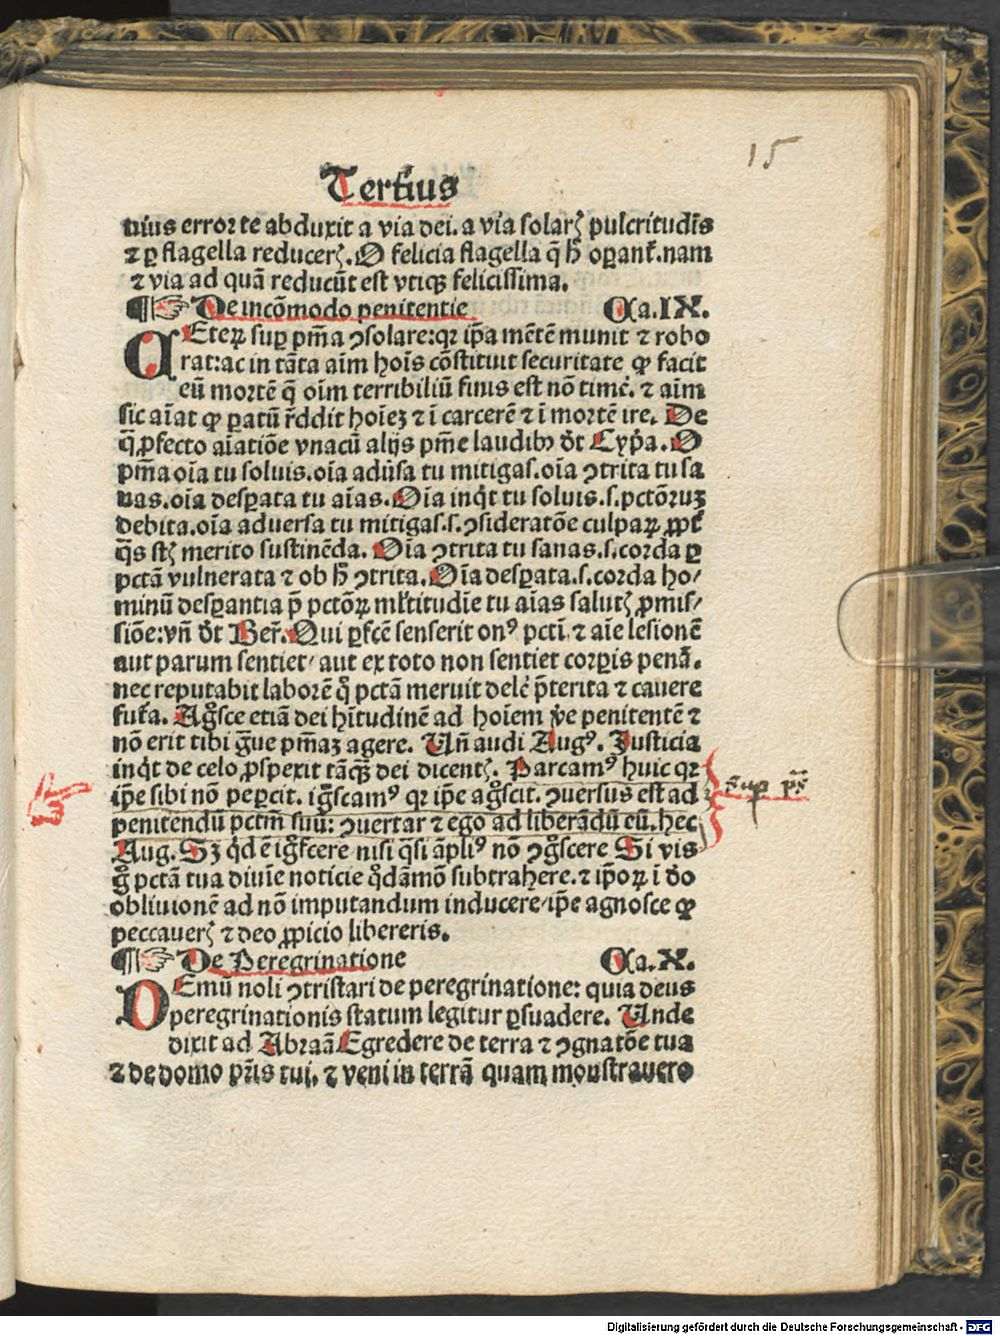 15
Terti᷒us
nius error te abduxit a via dei. a via solarꝫ pulcritudīs
⁊ ꝑ flagella reducerꝫ. O felicia flagella q̄ h̄ oꝑant᷑. nam
⁊ via ad quā reducūt est vtiqꝫ felicissima.
¶☞ De incōmodo penitentie Ca.IX.
CEteꝝ suꝑ pn̄ia ꝯsolare: qꝛ ip̄a mētē munit ⁊ robo
rat: ac in tāta aīm hoīs cōstituit securitate ꝙ facit
eū mortē q̄ oīm terribiliū finis est nō timē. ⁊ aīm
sic aīat ꝙ ꝑatū r̄ddit hoīeꝫ ⁊ ī carcerē ⁊ ī mortē ire. De
q̄ ꝓfecto aīatiōe vnacū alijs pn̄ie laudibꝰ dt̄ Cyp̄a. O
pn̄ia oīa tu soluis. oīa adūsa tu mitigas. oīa ꝯtrita tu sa
nas. oīa desꝑata tu aīas. Oīa inqt̄ tu soluis. s. pctōruꝫ
debita. oīa aduersa tu mitigas. s. ꝯsideratōe culpaꝝ ꝓpt̄
q̄s stꝫ merito sustinēda. Oīa ꝯtrita tu sanas. s. corda ꝑ
pctā vulnerata ⁊ ob h̄ ꝯtrita. Oīa desꝑata. s. corda ho/
minū desꝑantia p̄ pctōꝝ ml̄titudīe tu aīas salutꝫ ꝓmis/
siōe: vn̄ dt̄ Ber̄. Qui ꝑfcē senserit onꝰ pcti ⁊ aīe lesionē
aut parum sentiet/ aut ex toto non sentiet corꝑis penā.
nec reputabit laborē qͦ pctā meruit delē p̄terita ⁊ cauere
fut᷑a. Agͦsce etiā dei hītudinē ad hoīem v̄e penitentē ⁊
nō erit tibi gͣue pn̄iaꝫ agere. Un̄ audi Augꝰ. Justicia
inqt̄ de celo ꝓspexit tāqꝫ dei dicentꝫ. Parcamꝰ huic qꝛ
ip̄e sibi nō peꝑcit. igͦscamꝰ qꝛ ip̄e agͦscit. ꝯuersus est ad
penitendū pctm̄ suū: ꝯuertar ⁊ ego ad liberādū eū. hec
Aug. Sꝫ qd̄ ē igͦscere nisi qͣsi ampliꝰ nō ꝯgͦscere Si vis
gͦ pctā tua diuīe noticie qͦdāmō subtrahere. ⁊ ip̄oꝝ ī dō
obliuionē ad nō imputandum inducere/ ip̄e agnosce ꝙ
peccauerꝫ ⁊ deo ꝓpicio libereris.
sup ps̄
¶☞ De Peregrinatione Ca.X.
DEmū noli ꝯtristari de peregrinatione: quia deus
peregrinationis statum legitur ꝑsuadere. Unde
dixit ad Abraā Egredere de terra ⁊ ꝯgnatōe tua
⁊ de domo pr̄is tui. ⁊ veni in terrā quam monstrauero
Digitalisierung gefördert durch die Deutsche Forschungsgemeinschaft - DFG